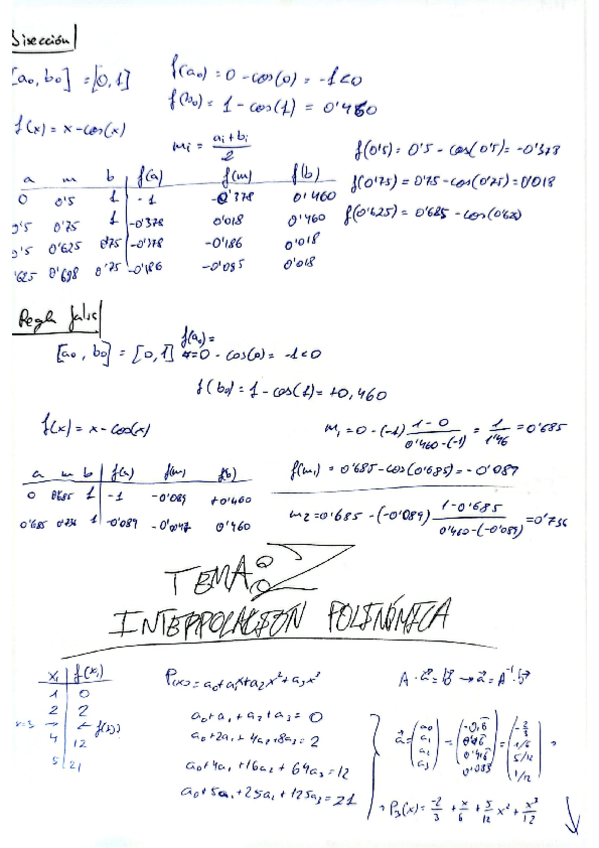 Bisección
[a₀, b₀] = [0,1]
f(a₀) = 0 - cos(0) = -1 < 0
f(b₀) = 1 - cos(1) = 0'460
f(x) = x - cos(x)
mᵢ = (aᵢ + bᵢ)/2
f(0'5) = 0'5 - cos(0'5) = -0'378
f(0'75) = 0'75 - cos(0'75) = 0'018
f(0'625) = 0'685 - cos(0'625)
a m b f(a) f(m) f(b)
0 0'5 1 -1 -0'378 0'460
0'5 0'75 1 -0'378 0'018 0'460
0'5 0'625 0'75 -0'178 -0'186 0'018
'625 0'698 0'75 -0'186 -0'085 0'018
Regla falsi
[a₀, b₀] = [0,1]
f(a₀) =
0 - cos(0) = -1 < 0
f(b₀) = 1 - cos(1) = +0,460
f(x) = x - cos(x)
m₁ = 0 - (-1) (1-0)/(0'460-(-1)) = 1/1'46 = 0'685
f(m₁) = 0'685 - cos(0'685) = -0'089
a m b f(a) f(m) f(b)
0 0'685 1 -1 -0'089 +0'460
0'685 0'736 1 -0'089 -0'0047 0'460
m₂ = 0'685 - (-0'089) (1-0'685)/(0'460-(-0'089)) = 0'736
TEMA: 2
INTERPOLACION POLINÓMICA
xᵢ f(xᵢ)
1 0
2 2
x=3 → ← f(3)
4 12
5 21
P(x) = a₀ + a₁x + a₂x² + a₃x³
a₀ + a₁ + a₂ + a₃ = 0
a₀ + 2a₁ + 4a₂ + 8a₃ = 2
a₀ + 4a₁ + 16a₂ + 64a₃ = 12
a₀ + 5a₁ + 25a₂ + 125a₃ = 21
A · a⃗ = b⃗ → a⃗ = A⁻¹ · b⃗
a⃗ = (a₀ a₁ a₂ a₃) = (-0,6 0'16 0'416 0'083) = (-2/3 1/6 5/12 1/12)
P₃(x) = -2/3 + x/6 + 5/12 x² + x³/12